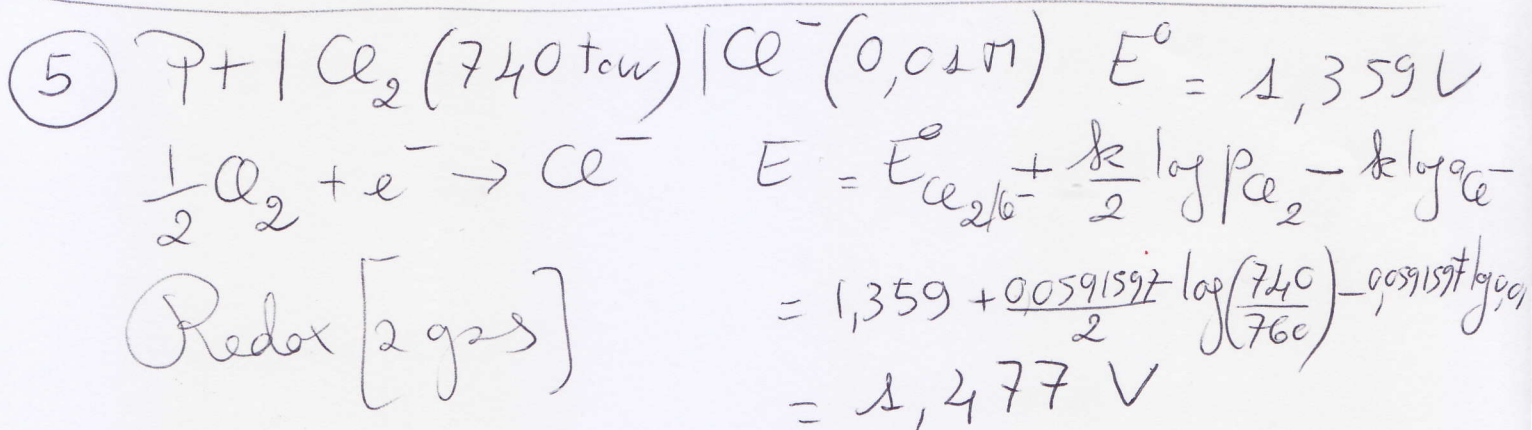 5 Pt | Cl₂ (740 torr) | Cl⁻ (0,01M) E⁰ = 1,359 V
½ Cl₂ + e⁻ → Cl⁻ E = E⁰Cl₂/Cl⁻ + k/2 log pCl₂ - k log aCl⁻
Redox [a gas] = 1,359 + 0,0591597/2 log(740/760) - 0,0591597 log 0,01
= 1,477 V